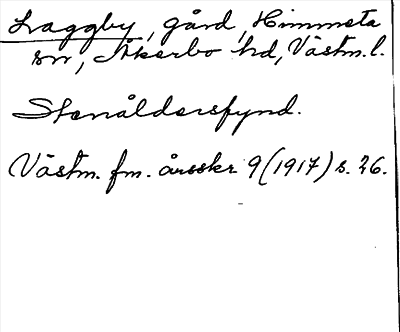 Laggby, gård, Himmeta
sn, Åkerbo hd, Västm. l.
Stenåldersfynd.
Västm. fm. årsskr 9 (1917) s. 26.